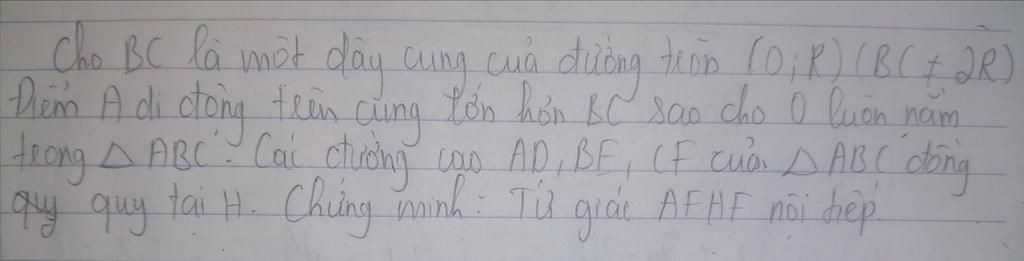 Cho BC là một dây cung của đường tròn (O;R) (BC ≠ 2R)
Điểm A di động trên cung lớn hơn BC sao cho O luôn nằm
trong △ ABC. Các đường cao AD, BE, CF của △ ABC đồng
quy quy tại H. Chứng minh: Tứ giác AFHF nội tiếp.